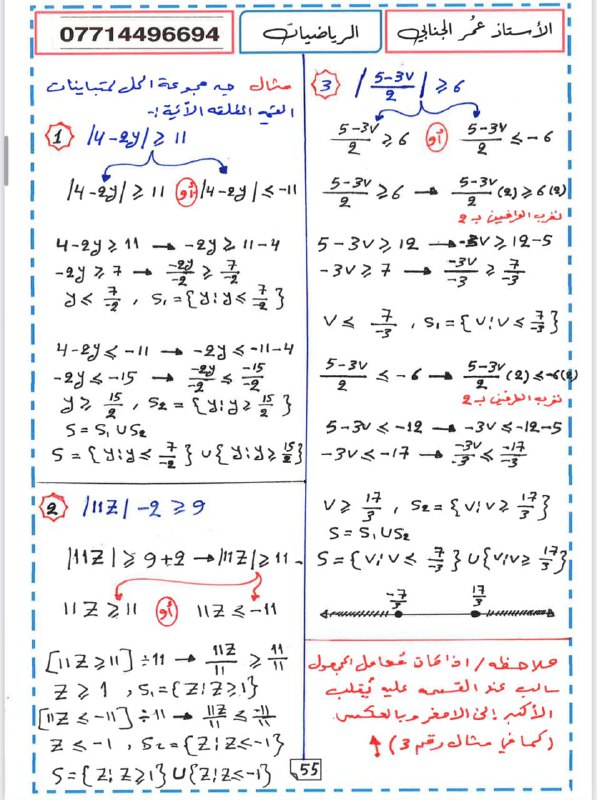 الأستاذ عمر الجنابي
الرياضيات
07714496694
مثال جد مجموعة الحل لمتباينات
القيمة المطلقه الآتية:-
1 |4-2y| ⩾ 11
|4-2y| ⩾ 11 أو |4-2y| ⩽ -11
4-2y ⩾ 11 → -2y ⩾ 11-4
-2y ⩾ 7 → -2y/-2 ⩾ 7/-2
y ⩽ 7/-2 , S₁ = {y: y ⩽ 7/-2}
4-2y ⩽ -11 → -2y ⩽ -11-4
-2y ⩽ -15 → -2y/-2 ⩽ -15/-2
y ⩾ 15/2 , S₂ = {y: y ⩾ 15/2}
S = S₁ ∪ S₂
S = {y: y ⩽ 7/-2} ∪ {y: y ⩾ 15/2}
2 |11Z| -2 ⩾ 9
|11Z| ⩾ 9+2 → |11Z| ⩾ 11
11Z ⩾ 11 أو 11Z ⩽ -11
[11Z ⩾ 11] ÷11 → 11Z/11 ⩾ 11/11
Z ⩾ 1 , S₁ = {Z: Z ⩾ 1}
[11Z ⩽ -11] ÷11 → 11Z/11 ⩽ -11/11
Z ⩽ -1 , S₂ = {Z: Z ⩽ -1}
S = {Z: Z ⩾ 1} ∪ {Z: Z ⩽ -1}
3 |5-3v/2| ⩾ 6
5-3v/2 ⩾ 6 أو 5-3v/2 ⩽ -6
5-3v/2 ⩾ 6 → 5-3v/2 (2) ⩾ 6(2)
نضرب الطرفين بـ 2
5-3v ⩾ 12 → -3v ⩾ 12-5
-3v ⩾ 7 → -3v/-3 ⩾ 7/-3
v ⩽ 7/-3 , S₁ = {v: v ⩽ 7/-3}
5-3v/2 ⩽ -6 → 5-3v/2 (2) ⩽ -6(2)
نضرب الطرفين بـ 2
5-3v ⩽ -12 → -3v ⩽ -12-5
-3v ⩽ -17 → -3v/-3 ⩽ -17/-3
v ⩾ 17/3 , S₂ = {v: v ⩾ 17/3}
S = S₁ ∪ S₂
S = {v: v ⩽ 7/-3} ∪ {v: v ⩾ 17/3}
-7/3 17/3
ملاحظه / اذا كان معامل المجهول
سالب عند القسمه عليه يُقلب
الأكبر إلى الاصغر وبالعكس
(كما في مثال رقم 3)
55